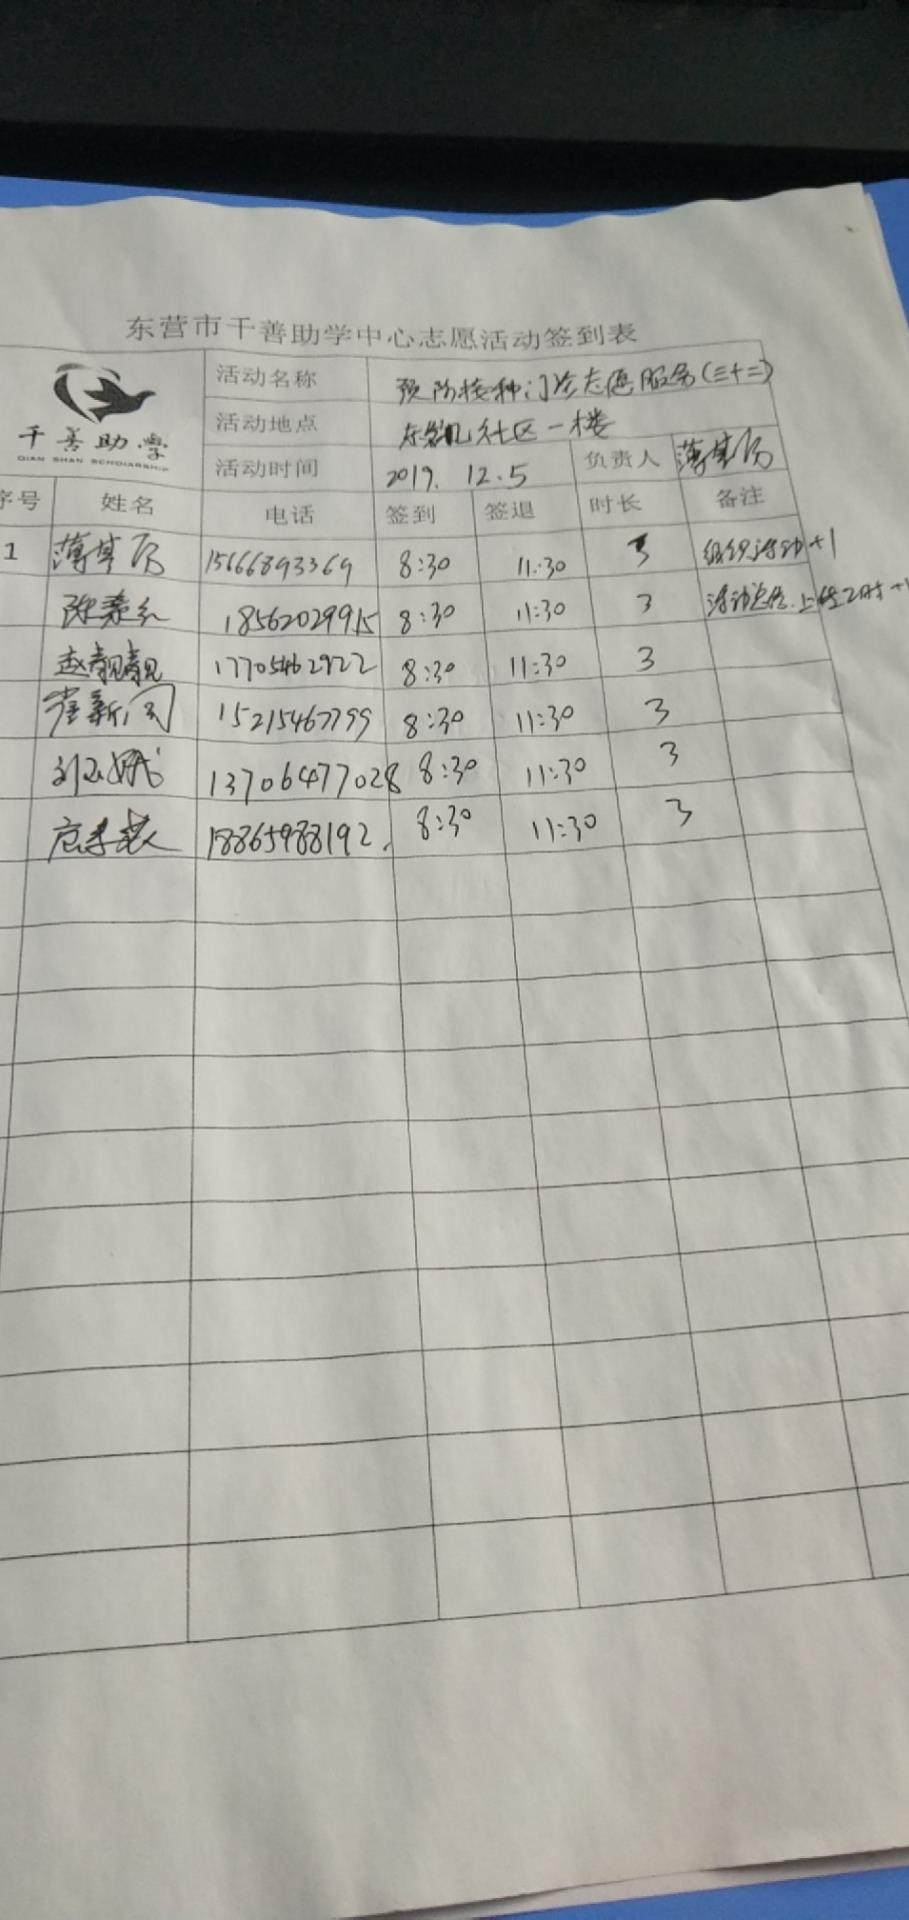 东营市千善助学中心志愿活动签到表
千善助學
QIAN SHAN SCHOLARSHIP
活动名称 预防接种门诊志愿服务(三十二)
活动地点 社区一楼
活动时间 2019. 12.5 负责人
序号 姓名 电话 签到 签退 时长 备注
1 15666893369 8:30 11:30 3 组织活动+1
18562029915 8:30 11:30 3
赵靓靓 17705462922 8:30 11:30 3
崔新 15215467799 8:30 11:30 3
刘玉娥 13706477028 8:30 11:30 3
18865988192. 8:30 11:30 3